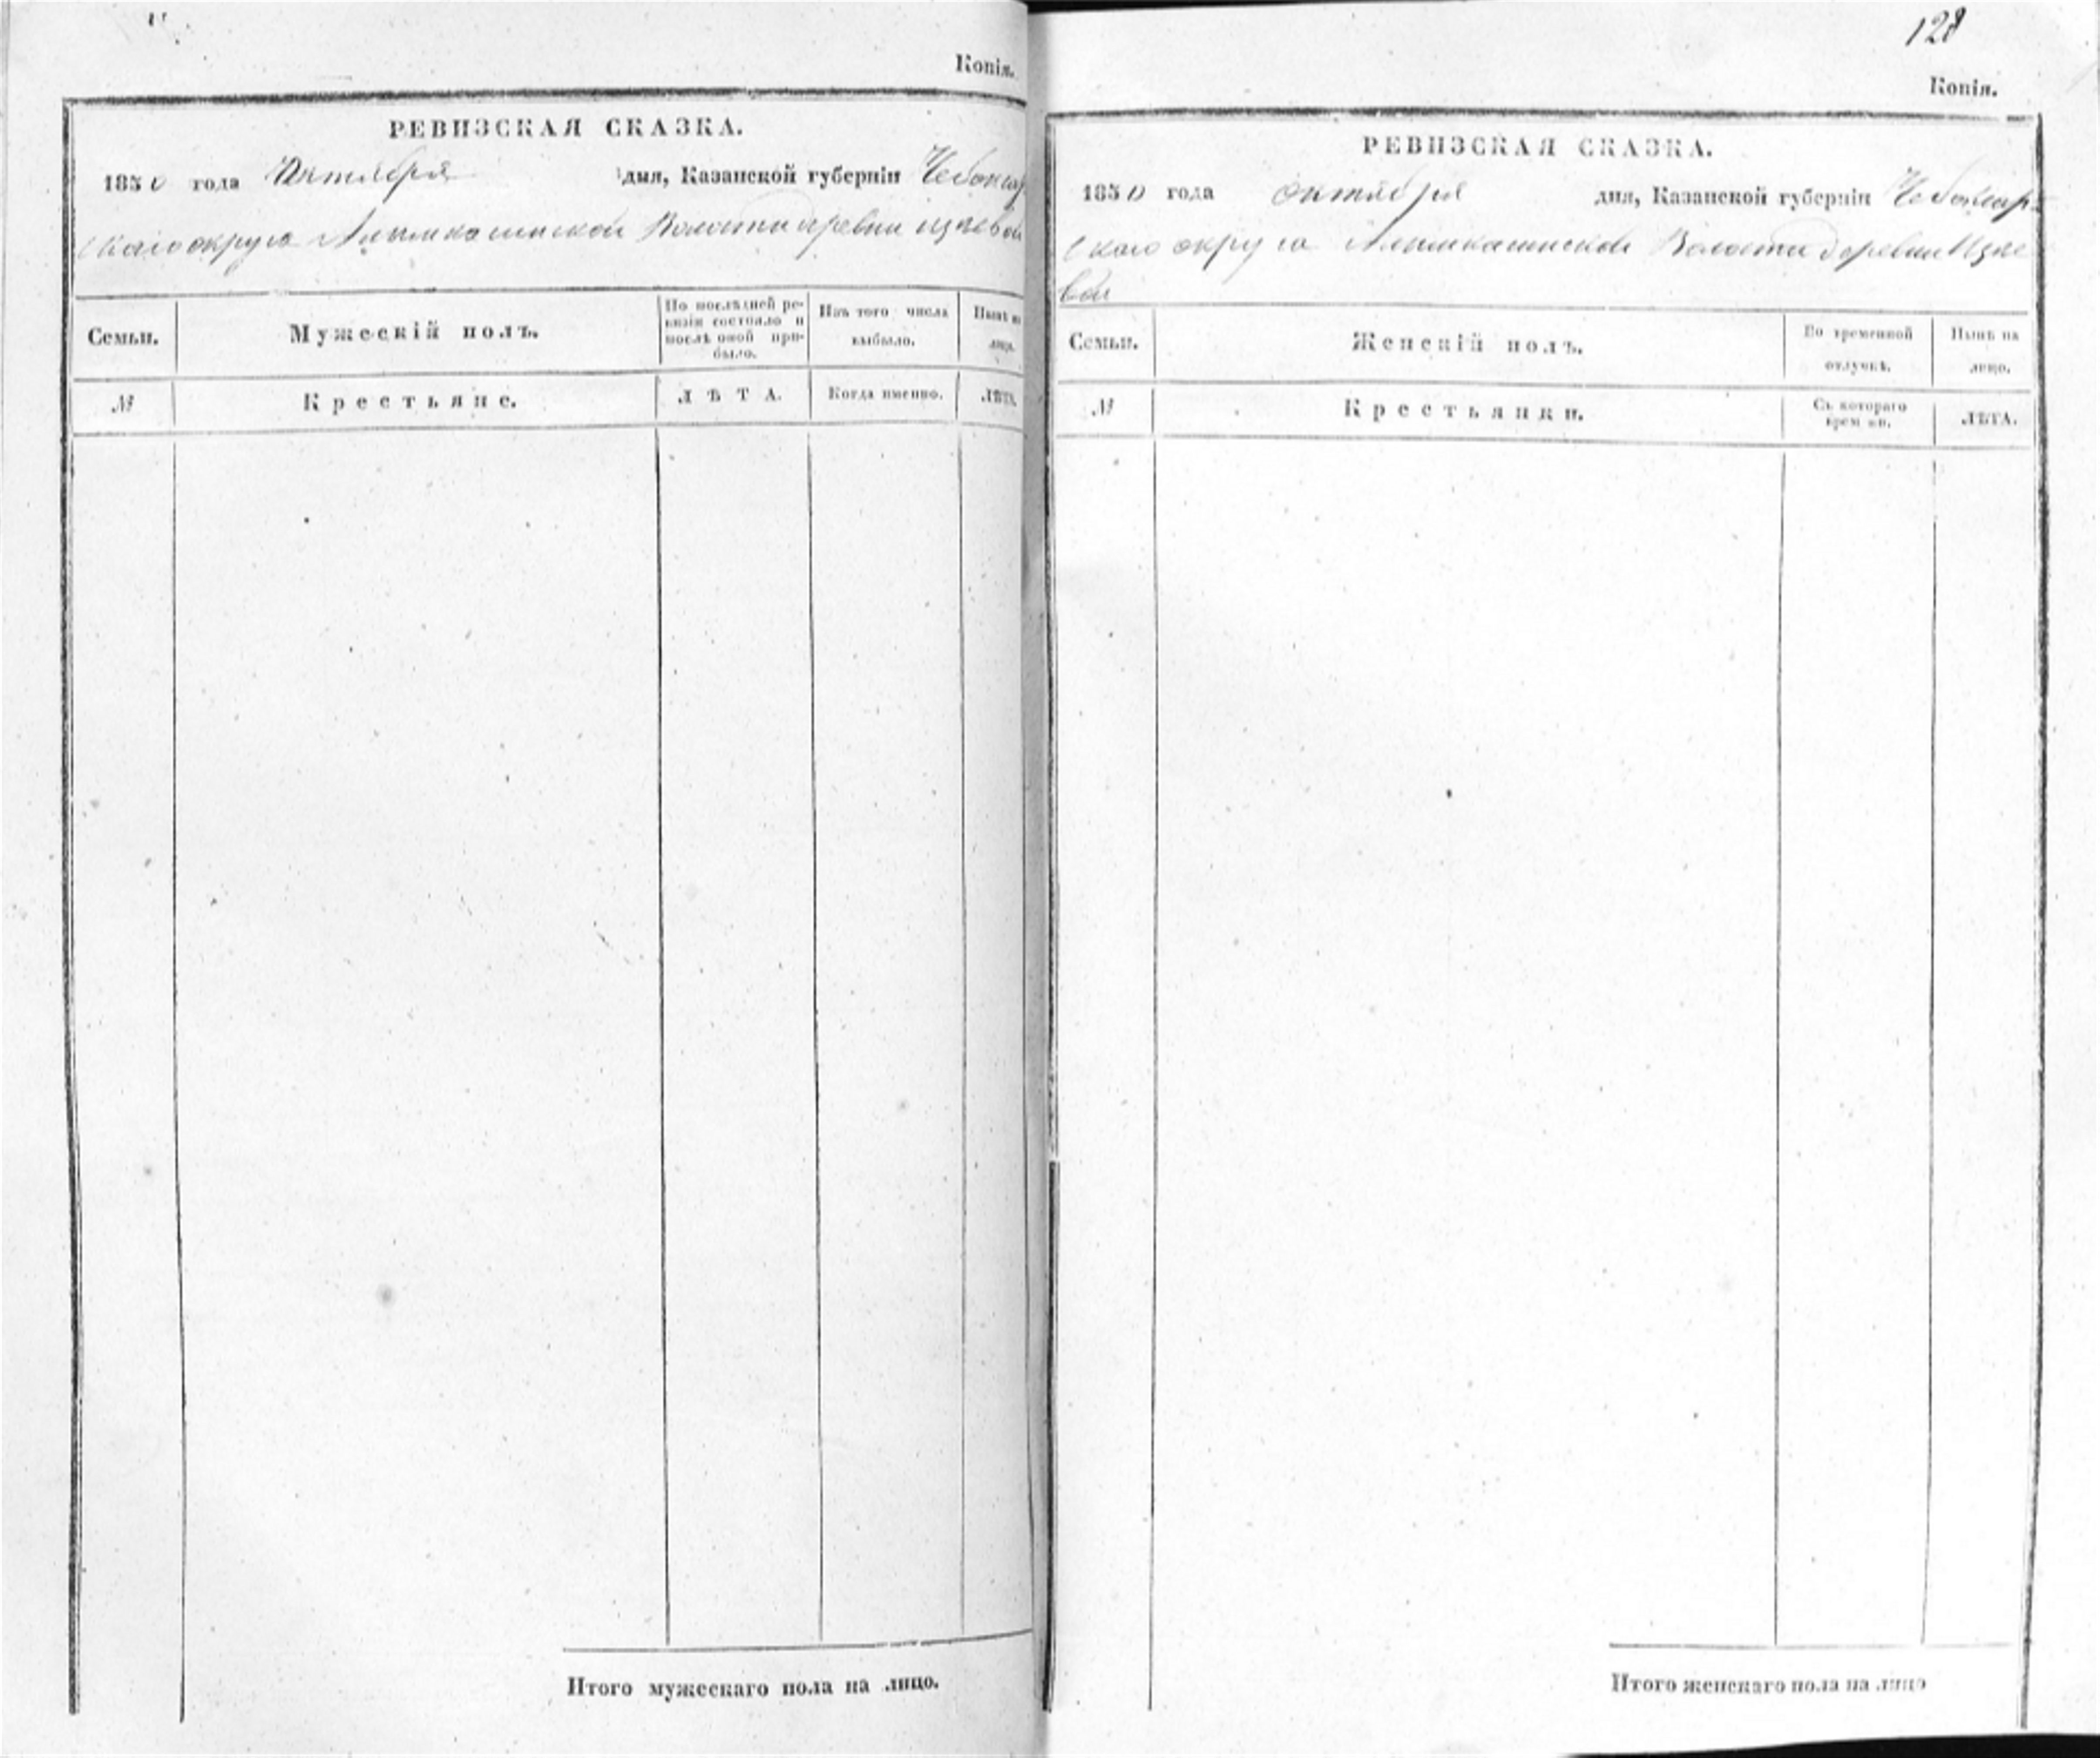 Копія.
РЕВИЗСКАЯ СКАЗКА.
1850 года Октября дня, Казанской губерніи Чебоксар
скаго округа Алымкасинской Волости деревни
Семьи.
Мужескій полъ.
По послѣдней ре-
визіи состояло и
послѣ оной при-
было.
Изъ того числа
выбыло.
Нынѣ на
лицо.
№
Крестьяне.
ЛѢТА.
Когда именно.
ЛѢТА.
Итого мужескаго пола на лицо.
128
Копія.
РЕВИЗСКАЯ СКАЗКА.
1850 года октября дня, Казанской губерніи Чебоксар-
скаго округа Алымкасинской Волости деревни
вой
Семьи.
Женскій полъ.
Во временной
отлучкѣ.
Нынѣ на
лицо.
№
Крестьянки.
Съ котораго
времени.
ЛѢТА.
Итого женскаго пола на лицо